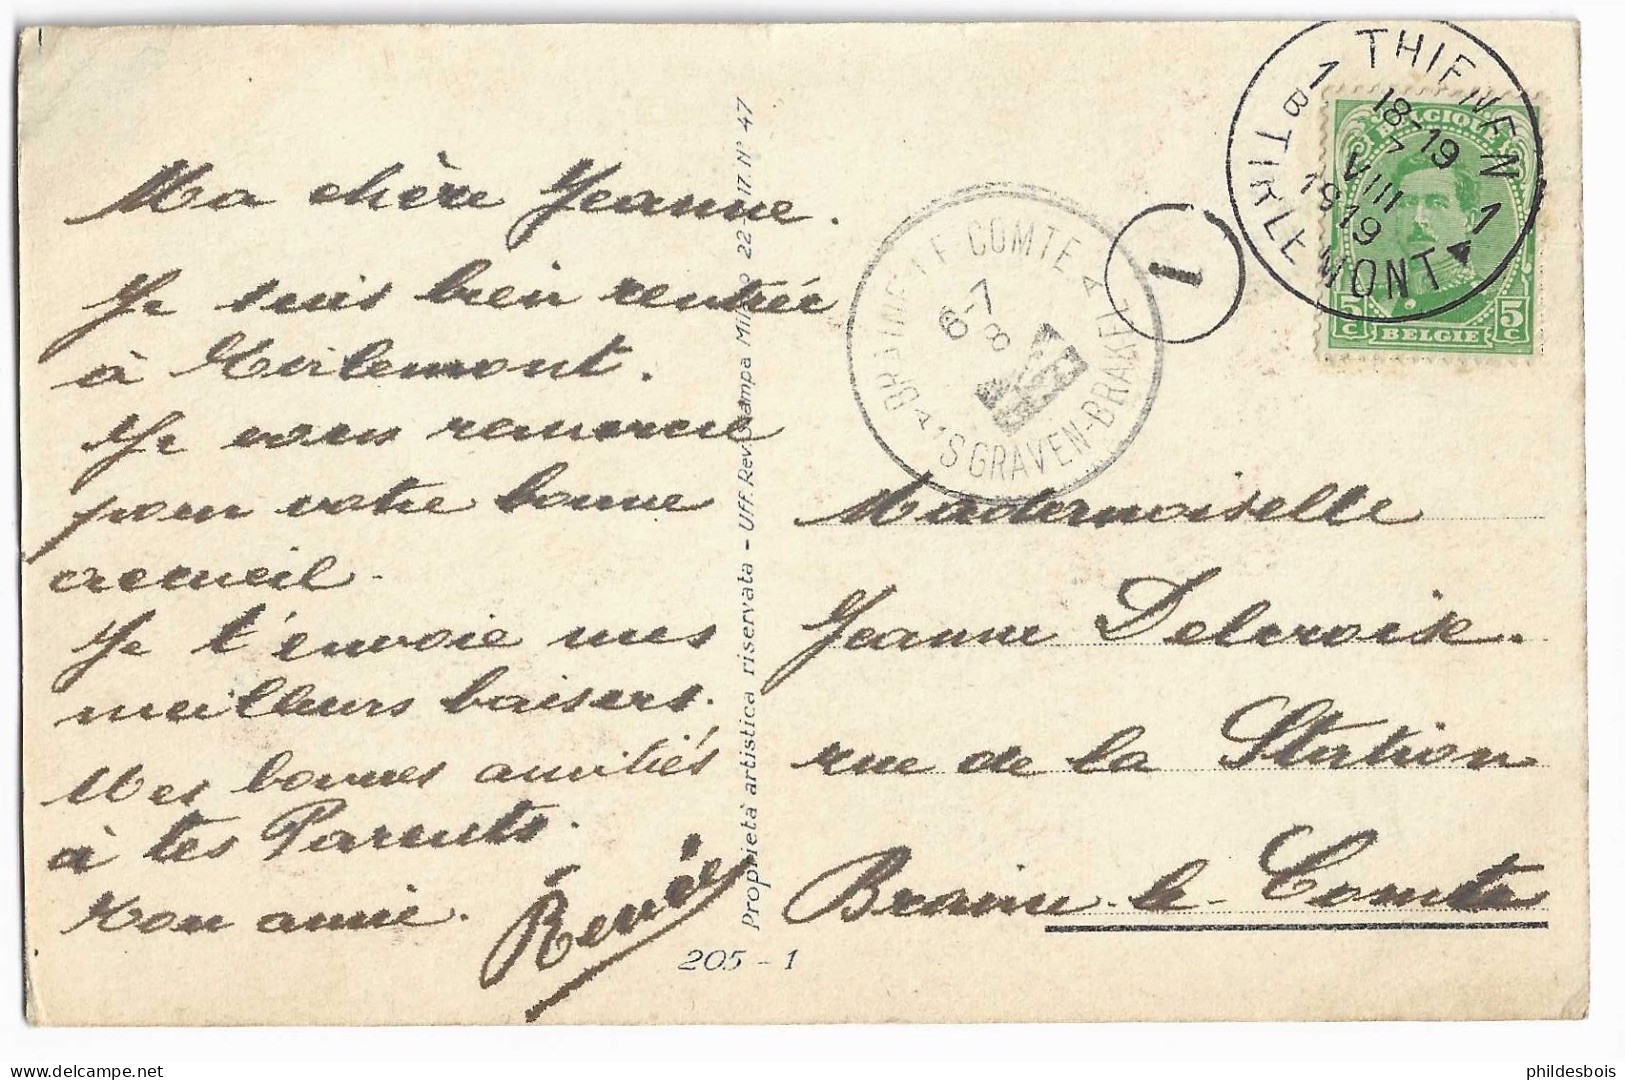 Ma chère Jeanne.
Je suis bien rentrée
à Tirlemont.
Je vous remercie
pour votre bonne
accueil.
Je t'envoie mes
meilleurs baisers.
Mes bonnes amitiés
à tes Parents.
Ton amie.
Renée
Proprietà artistica riservata - Uff. Rev. Stampa Milano 22-
17. N° 47
205 - 1
THIENEN 1
1 B TIRLEMONT
18-19
7
VIII
1919
BELGIQUE
5 c
BELGIE
5 c
BRAINE-LE COMTE
'S GRAVEN-BRAKEL
6-7
8
1
Mademoiselle
Jeanne Delcroix.
rue de la Station
Braine-le-Comte
phildesbois